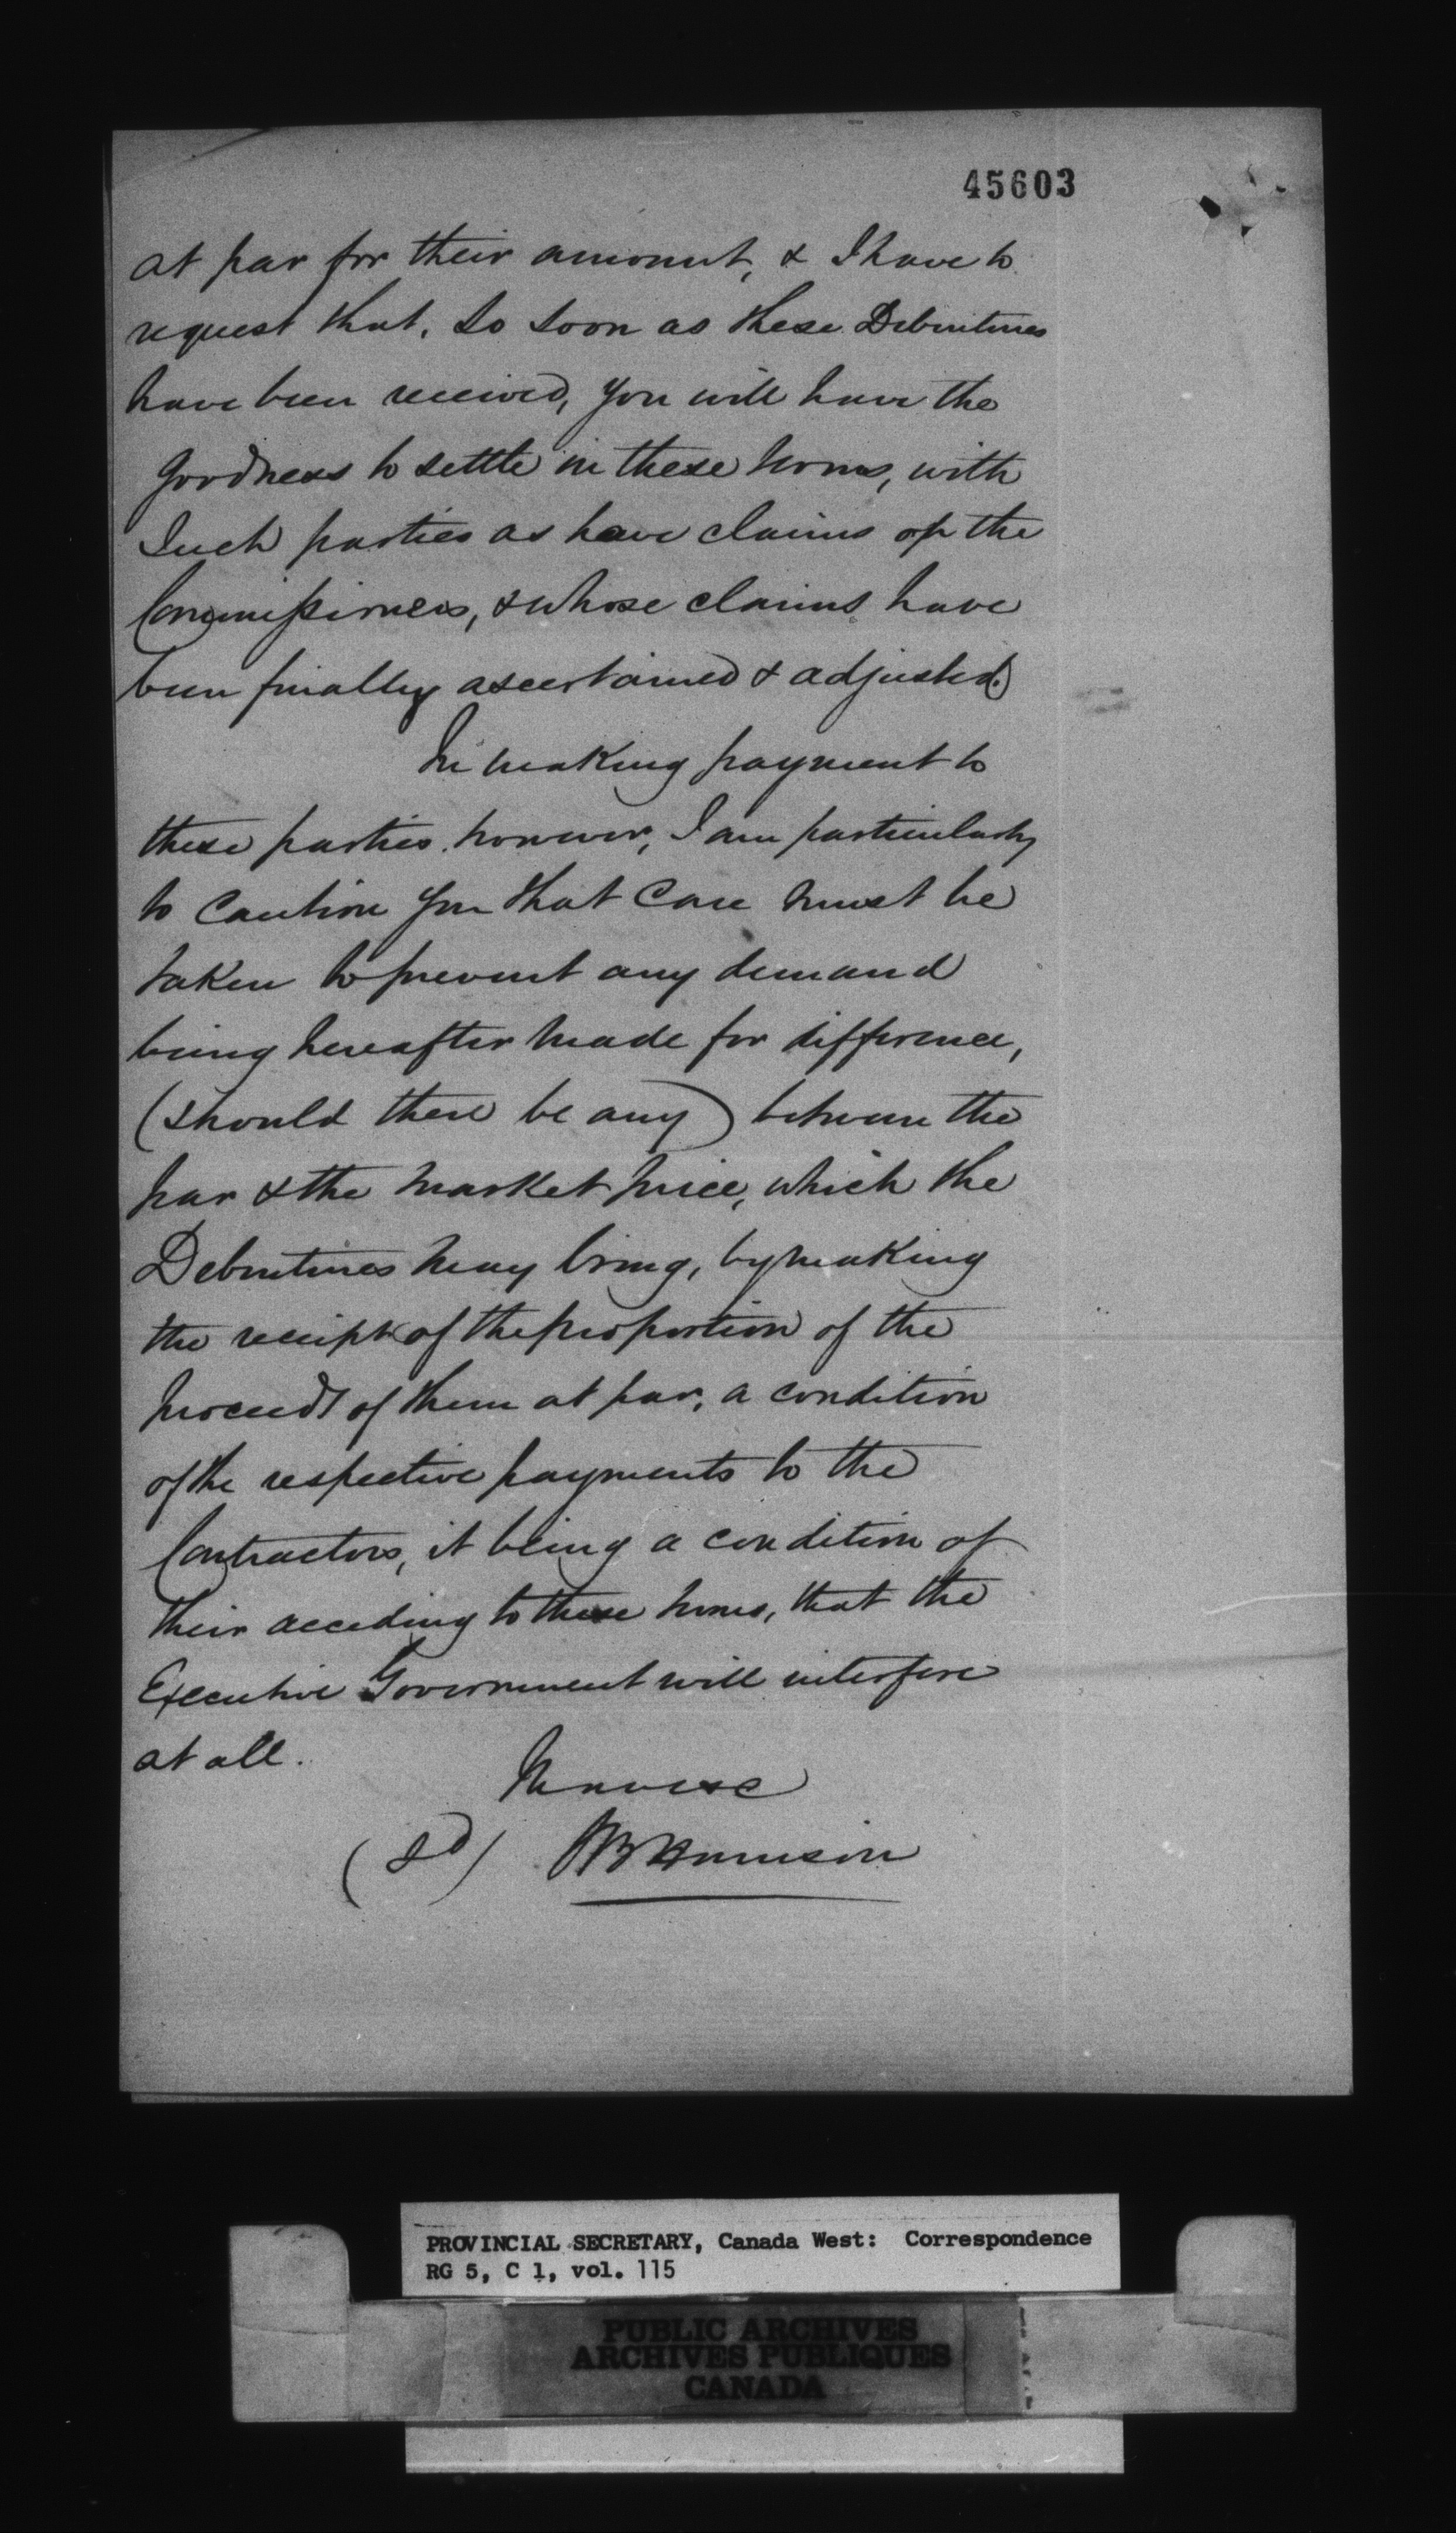 45603
at par for their amount, & I have to
request that, so soon as these Debentures
have been received, you will have the
goodness to settle in these terms, with
such parties as have claims op the
Commissioners, & whose claims have
been finally ascertained & adjusted.
In making payment to
these parties, however, I am particularly
to caution you that care must be
taken to prevent any demand
being hereafter made for difference,
(should there be any) between the
par & the market price, which the
Debentures may bring, by making
the receipt of the proportion of the
proceeds of them at par, a condition
of the respective payments to the
Contractors, it being a condition of
their acceding to these terms, that the
Executive Government will interfere
at all.
(sd)
PROVINCIAL SECRETARY, Canada West: Correspondence
RG 5, C 1, vol. 115
PUBLIC ARCHIVES
ARCHIVES PUBLIQUES
CANADA